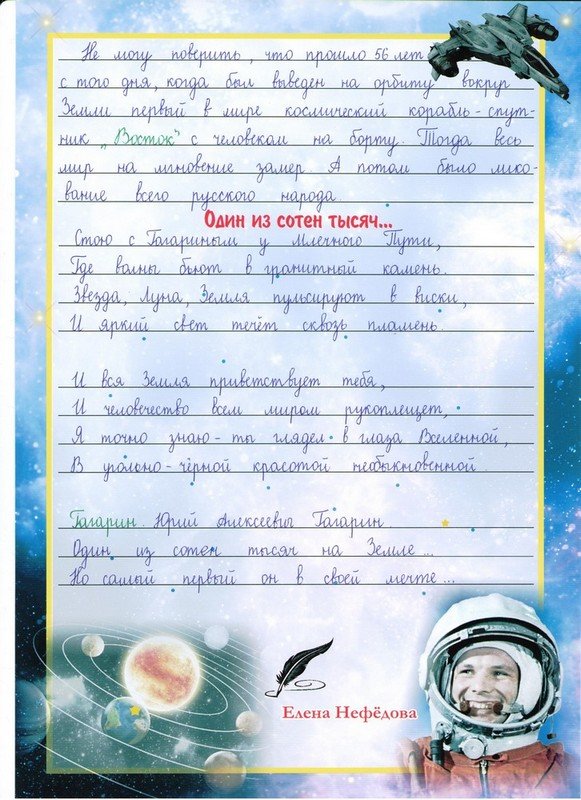 Не могу поверить, что прошло 56 лет
с того дня, когда был выведен на орбиту вокруг
Земли первый в мире космический корабль-спут-
ник „Восток" с человеком на борту. Тогда весь
мир на мгновение замер. А потом было лико-
вание всего русского народа.
Один из сотен тысяч...
Стою с Гагариным у Млечного Пути,
Где волны бьют в гранитный камень.
Звезда, Луна, Земля пульсируют в виски,
И яркий свет течёт сквозь пламень.
И вся Земля приветствует тебя,
И человечество всем миром рукоплещет,
Я точно знаю - ты глядел в глаза Вселенной,
В угольно-чёрной красотой необыкновенной
Гагарин. Юрий Алексеевич Гагарин.
Один из сотен тысяч на Земле...
Но самый первый он в своей мечте...
Елена Нефёдова